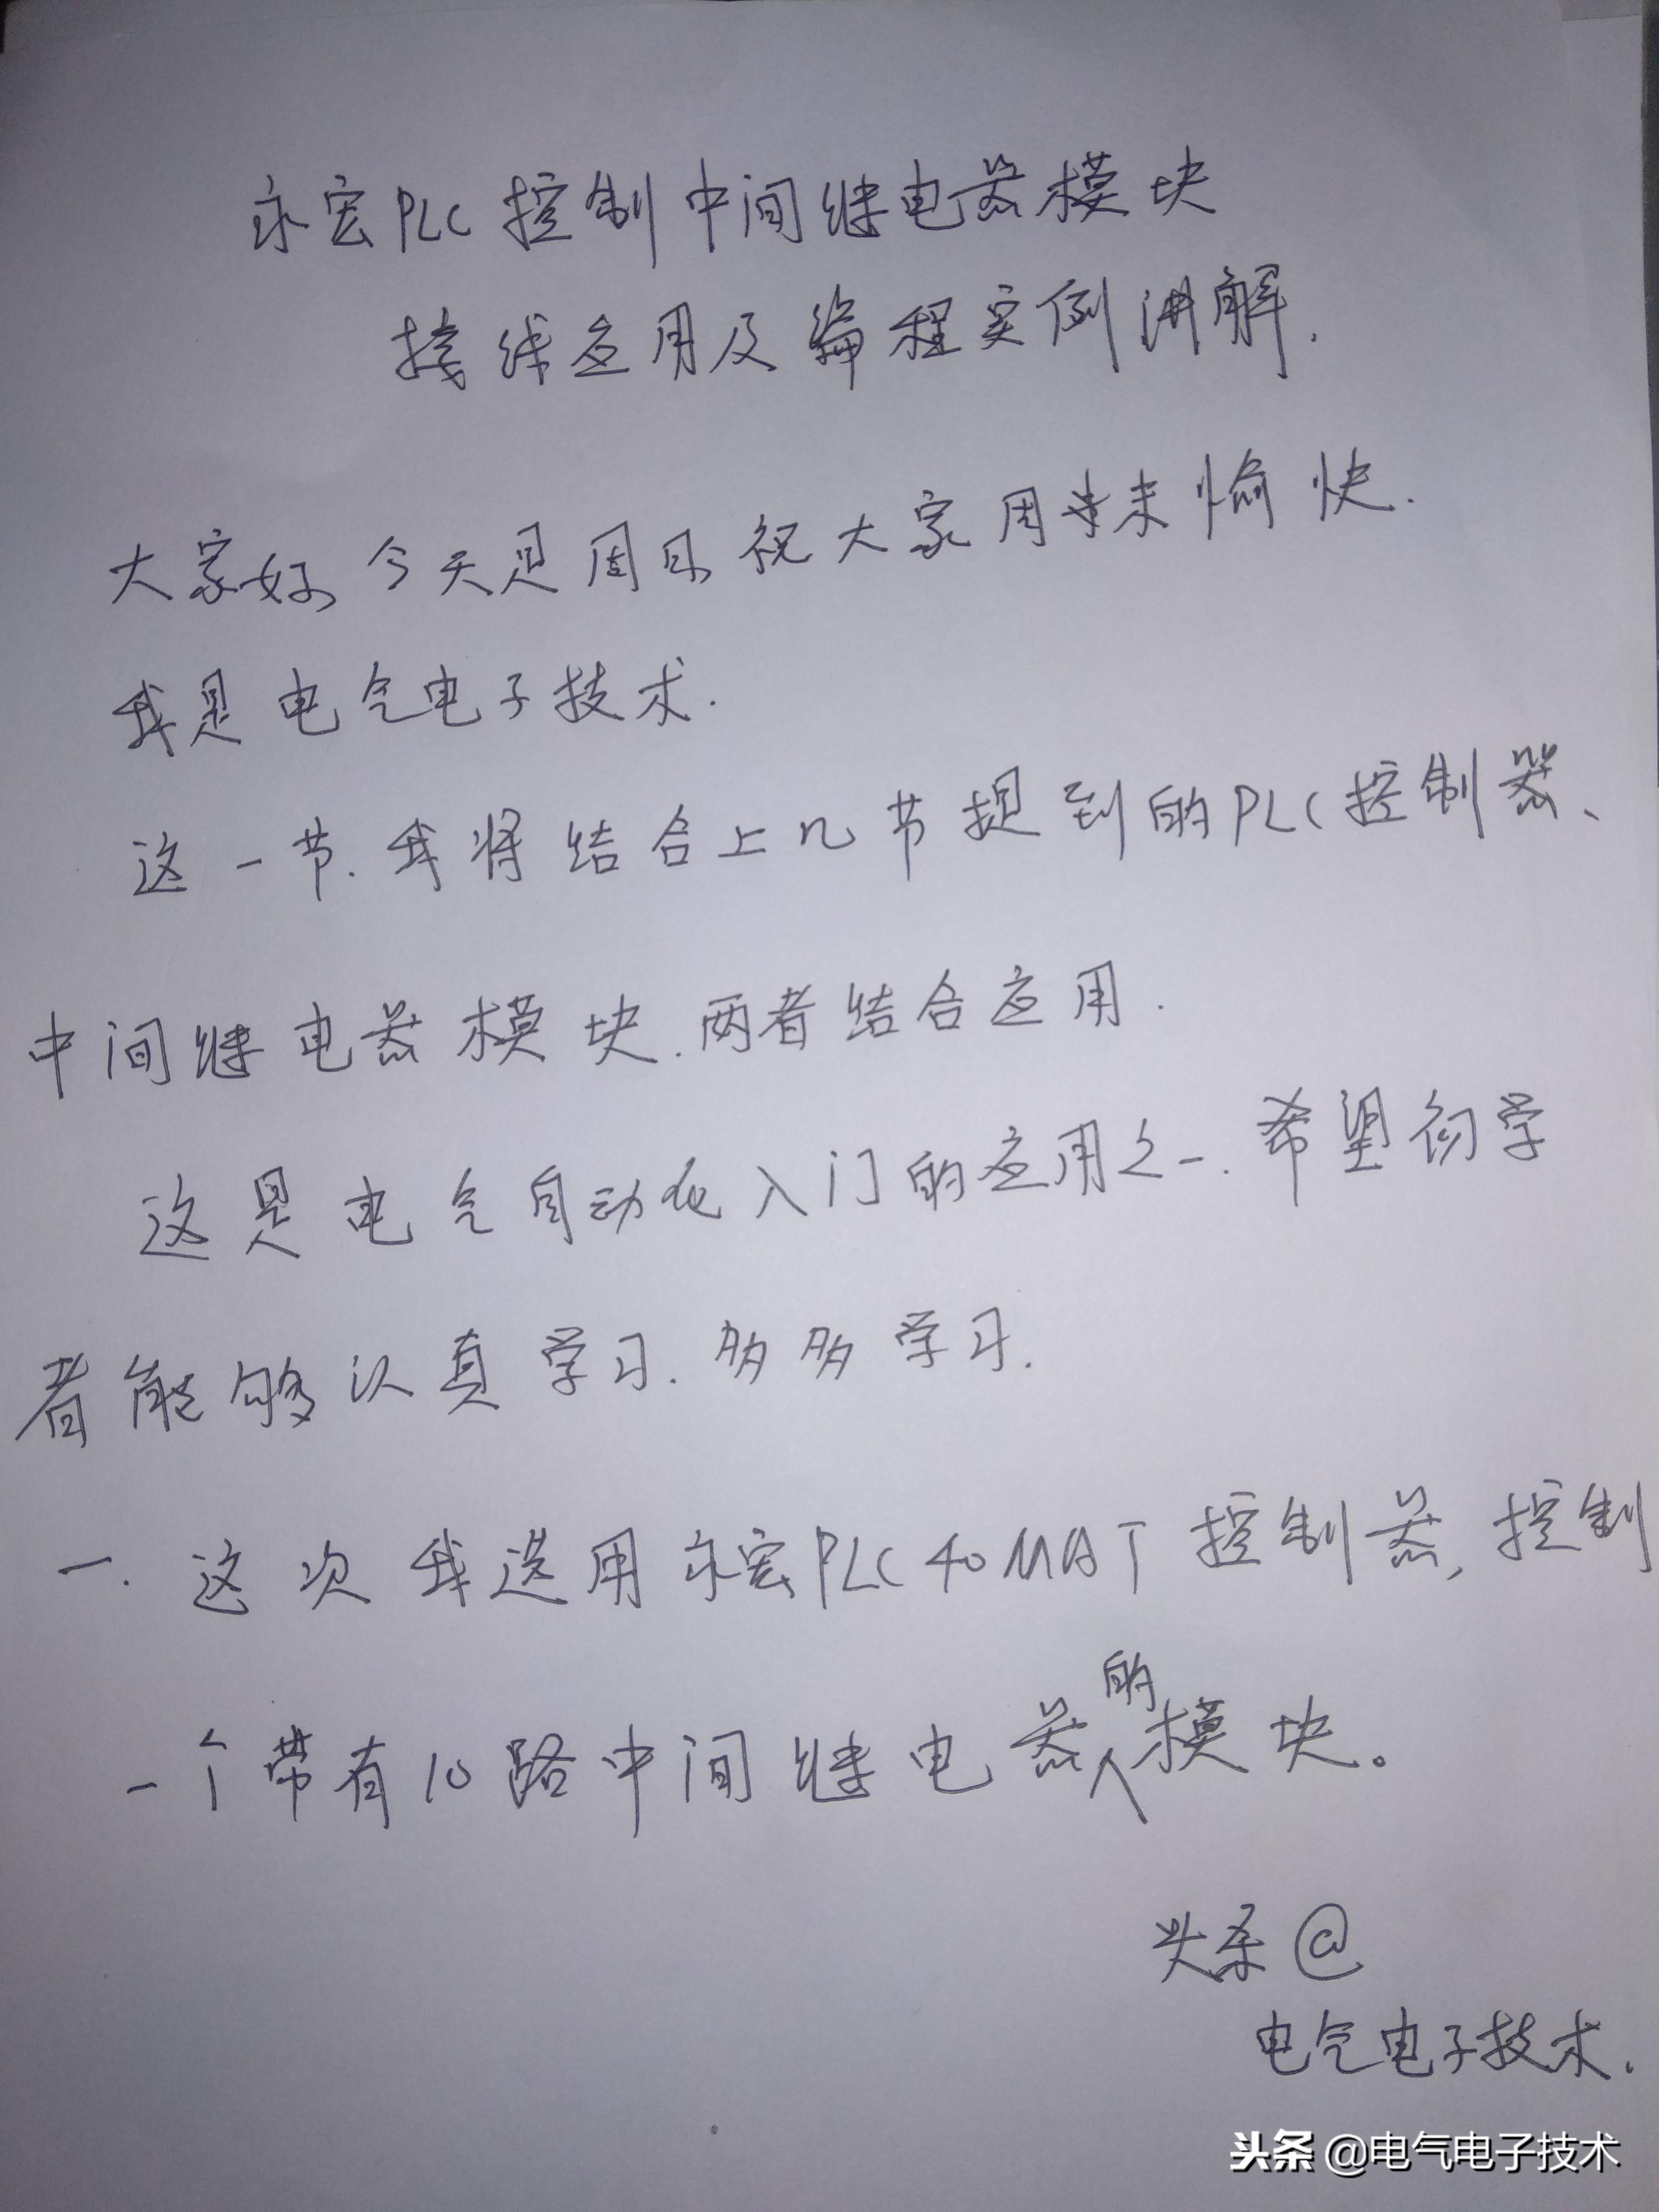 永宏PLC控制中间继电器模块
接线应用及编程实例讲解.
大家好,今天是周日,祝大家周末愉快.
我是电气电子技术.
这一节.我将结合上几节提到的PLC控制器、
中间继电器模块.两者结合应用.
这是电气自动化入门的应用之一.希望初学
者能够认真学习.多多学习.
一.这次我选用永宏PLC40MAT控制器,控制
一个带有10路中间继电器的模块。
头条@
电气电子技术.
头条 @电气电子技术